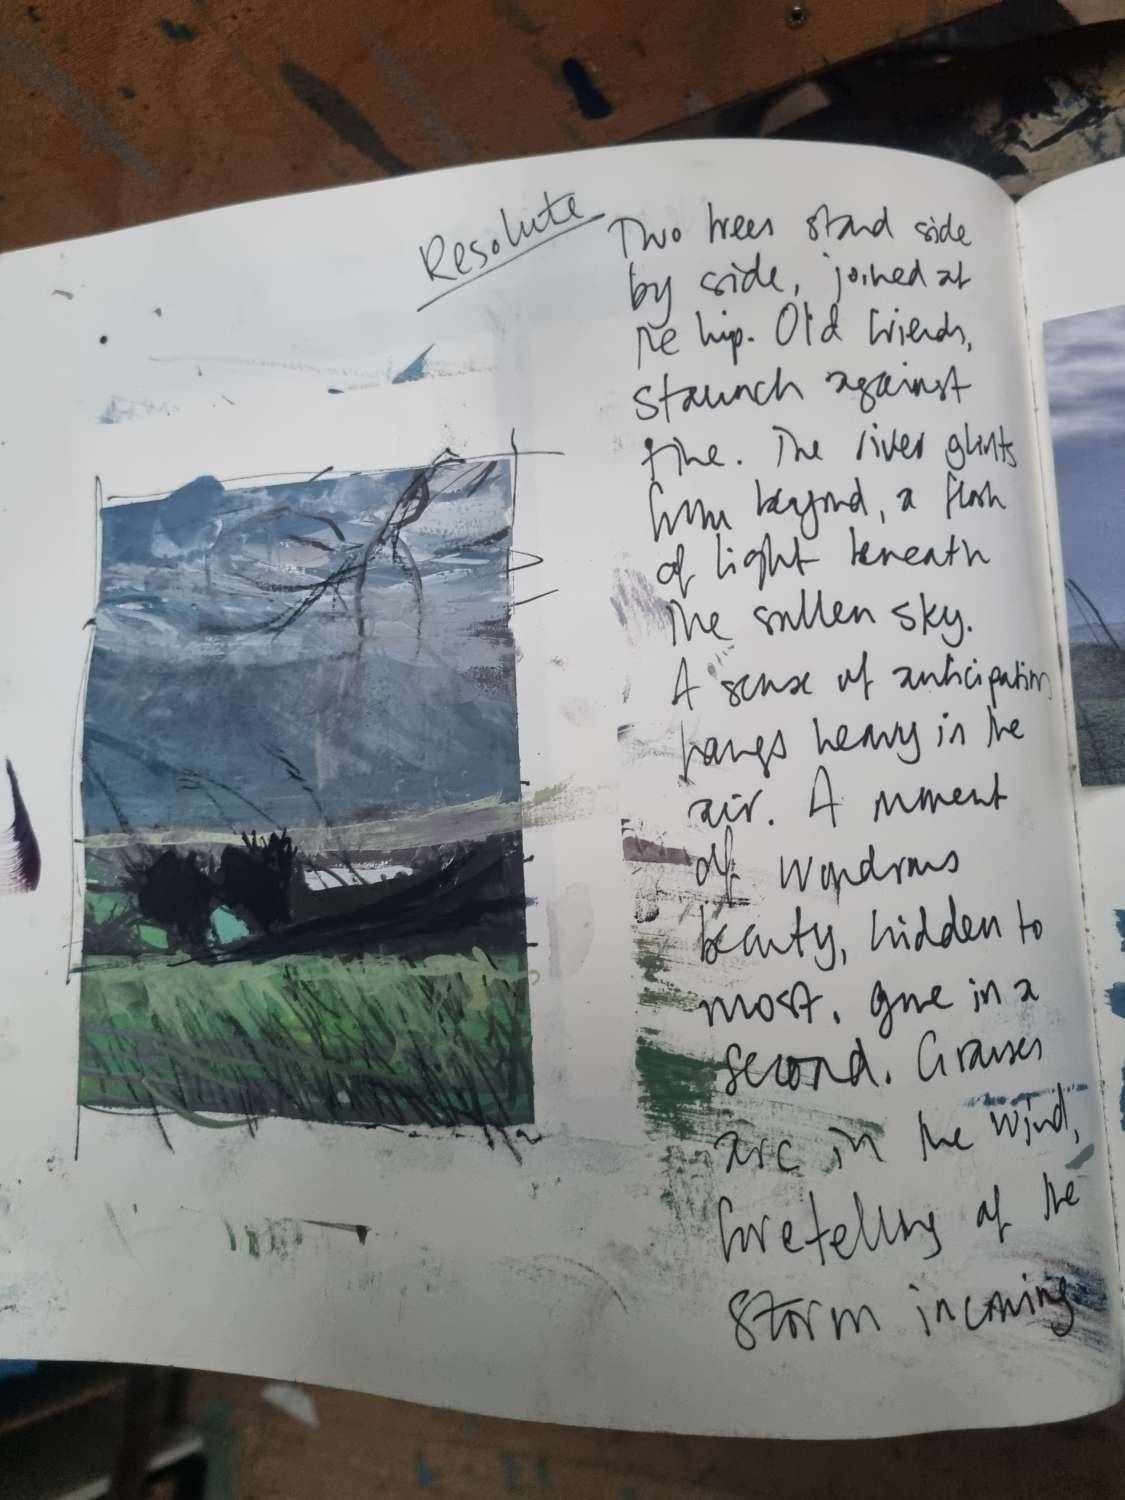 Resolute
Two trees stand side
by side, joined at
the hip. Old friends,
staunch against
time. The river glints
from beyond, a flash
of light beneath
the sullen sky.
A sense of anticipation
hangs heavy in the
air. A moment
of wondrous
beauty, hidden to
most. Gone in a
second. Grasses
arc in the wind,
foretelling of the
storm incoming